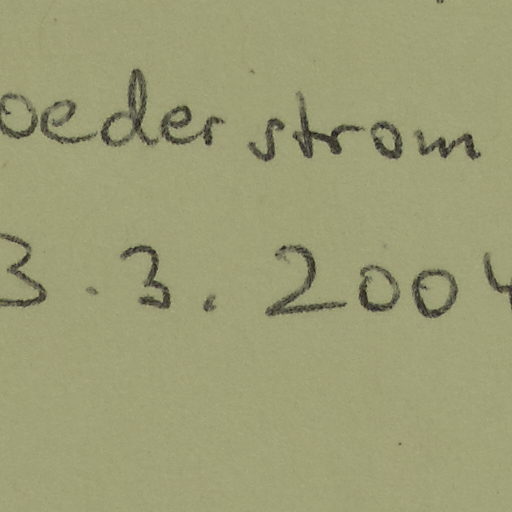 oederstrom
3.3.2004